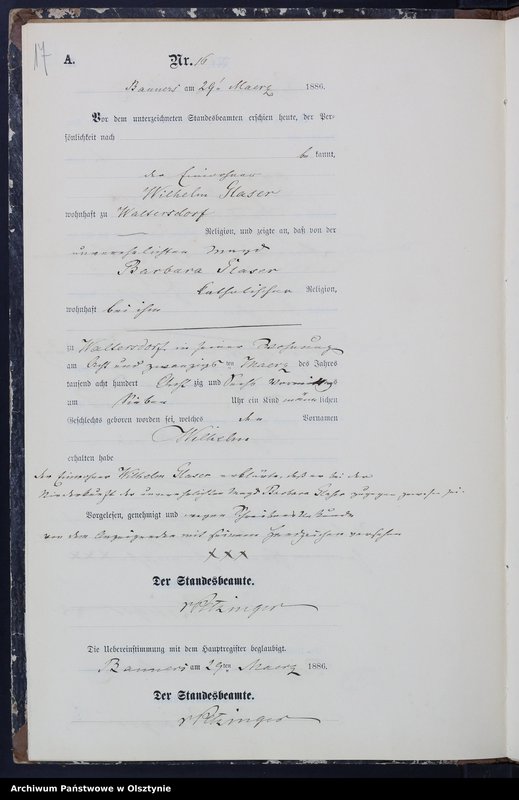 17
A.
Nr. 16
Banners am 29ten Maerz 1886.
Vor dem unterzeichneten Standesbeamten erschien heute, der Per-
sönlichkeit nach
be kannt,
der Einwohner
Wilhelm Glaser
wohnhaft zu Waltersdorf
Religion, und zeigte an, daß von der
unverehelichten Magd
Barbara Glaser
katholischer Religion,
wohnhaft bei ihm
zu Waltersdorf in seiner Wohnung
am Acht und zwanzigsten Maerz des Jahres
tausend acht hundert Acht zig und Sechs Vormittags
um Sieben Uhr ein Kind männlichen
Geschlechts geboren worden sei, welches den Vornamen
Wilhelm
erhalten habe
der Einwohner Wilhelm Glaser erklärte, daß er bei der
Niederkunft der unverehelichten Magd Barbara Glaser zugegen gewesen sei.
Vorgelesen, genehmigt und wegen Schreibensunkunde
von dem Anzeigenden mit seinem Handzeichen versehen
XXX
Der Standesbeamte.
Die Uebereinstimmung mit dem Hauptregister beglaubigt.
Banners am 29ten Maerz 1886.
Der Standesbeamte.
Archiwum Państwowe w Olsztynie